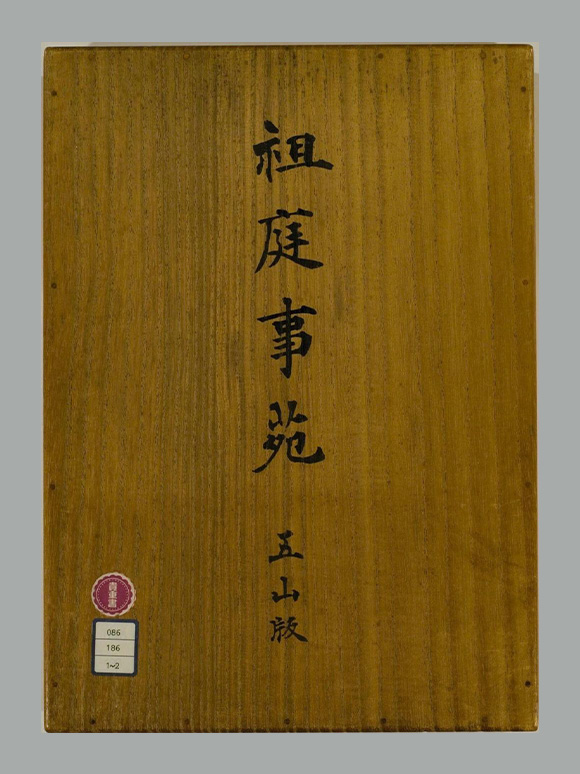 祖庭事苑
五山版
貴重書
086
186
1~2